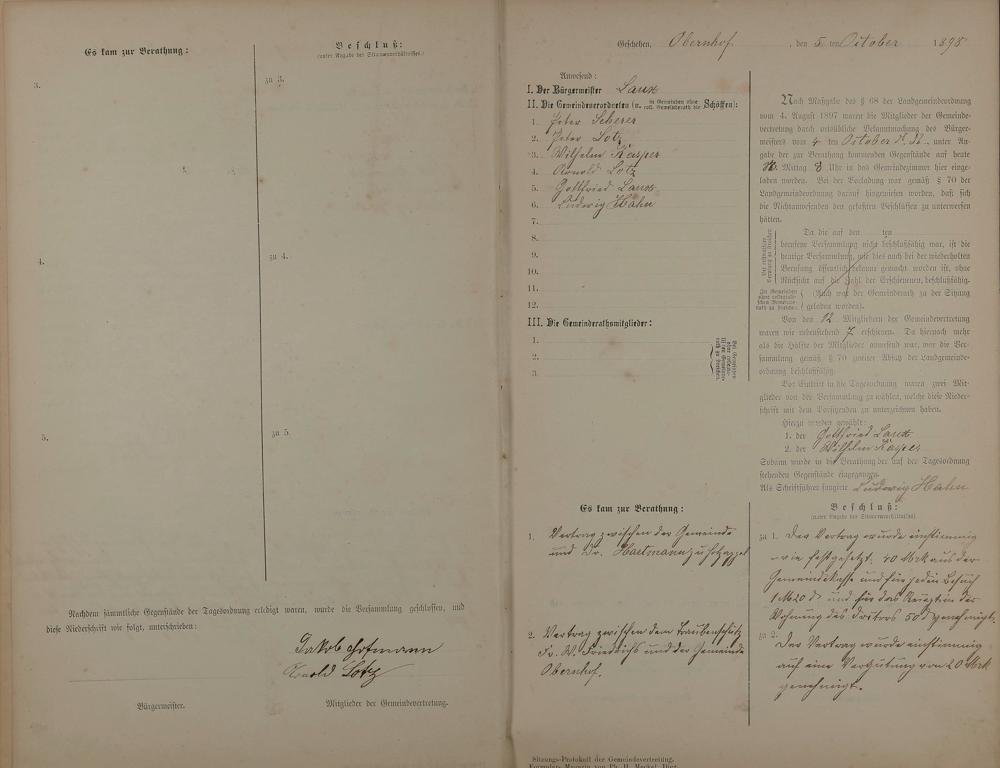 Es kam zur Berathung:
Beschluß:
(unter Angabe des Stimmenverhältnisses)
3.
zu 3.
4.
zu 4.
5.
zu 5.
Nachdem sämmtliche Gegenstände der Tagesordnung erledigt waren, wurde die Versammlung geschlossen, und
diese Niederschrift wie folgt, unterschrieben:
Jakob
Arnold Lotz
Bürgermeister.
Mitglieder der Gemeindevertretung.
Geschehen, Obernhof, den 5. ten October 1898
Anwesend:
I. Der Bürgermeister Laux
II. Die Gemeindeverordneten (u. in Gemeinden ohne coll. Gemeinderath die Schöffen):
1. Peter Scherer
2. Peter Lotz
3. Wilhelm Kasper
4. Arnold Lotz
5. Gottfried Laux
6. Ludwig Hahn
7.
8.
9.
10.
11.
12.
III. Die Gemeinderathsmitglieder:
1.
2.
3.
Nach Maßgabe des § 68 der Landgemeindeordnung
vom 4. August 1897 waren die Mitglieder der Gemeinde-
vertretung durch ortsübliche Bekanntmachung des Bürger-
meisters vom 4 ten October d. Js. unter An-
gabe der zur Berathung kommenden Gegenstände auf heute
Mittag 8 Uhr in das Gemeindezimmer hier einge-
laden worden. Bei der Vorladung war gemäß § 70 der
Landgemeindeordnung darauf hingewiesen worden, daß sich
die Nichtanwesenden den gefaßten Beschlüssen zu unterwerfen
hätten.
Da die auf den ten
berufene Versammlung nicht beschlußfähig war, ist die
heutige Versammlung, wie dies auch bei der wiederholten
Berufung öffentlich bekannt gemacht worden ist, ohne
Rücksicht auf die Zahl der Erschienenen, beschlußfähig.
(Auch war der Gemeinderath zu der Sitzung
geladen worden).
Von den 12 Mitgliedern der Gemeindevertretung
waren wie nebenstehend 7 erschienen. Da hiernach mehr
als die Hälfte der Mitglieder anwesend war, war die Ver-
sammlung gemäß § 70 zweiter Absatz der Landgemeinde-
ordnung beschlußfähig.
Vor Eintritt in die Tagesordnung waren zwei Mit-
glieder von der Versammlung zu wählen, welche diese Nieder-
schrift mit dem Vorsitzenden zu unterzeichnen haben.
Hierzu wurden gewählt:
1. der Gottfried Laux
2. der Wilhelm Kasper
Sodann wurde in die Berathung der auf der Tagesordnung
stehenden Gegenstände eingegangen.
Als Schriftführer fungirte Ludwig Hahn
Es kam zur Berathung:
Beschluß:
(unter Angabe des Stimmenverhältnisses)
1. Vertrag zwischen der Gemeinde
und Dr. Hartmann zu Holzappel
zu 1. Der Vertrag wurde einstimmig
wie festgesetzt: 40 Mrk aus der
Gemeindekasse und für jeden Besuch
1 M 20 d und für das Rezept in der
Wohnung des Doctors 50 d genehmigt.
2. Vertrag zwischen dem Traubenschütz
Fr. W. Friedrichs und der Gemeinde
Obernhof.
zu 2. Der Vertrag wurde einstimmig
auf eine Vergütung von 20 Mrk
genehmigt.
Sitzungs-Protokoll der Gemeindevertretung.
Formular-Magazin von Ph. H. Meckel, Diez.